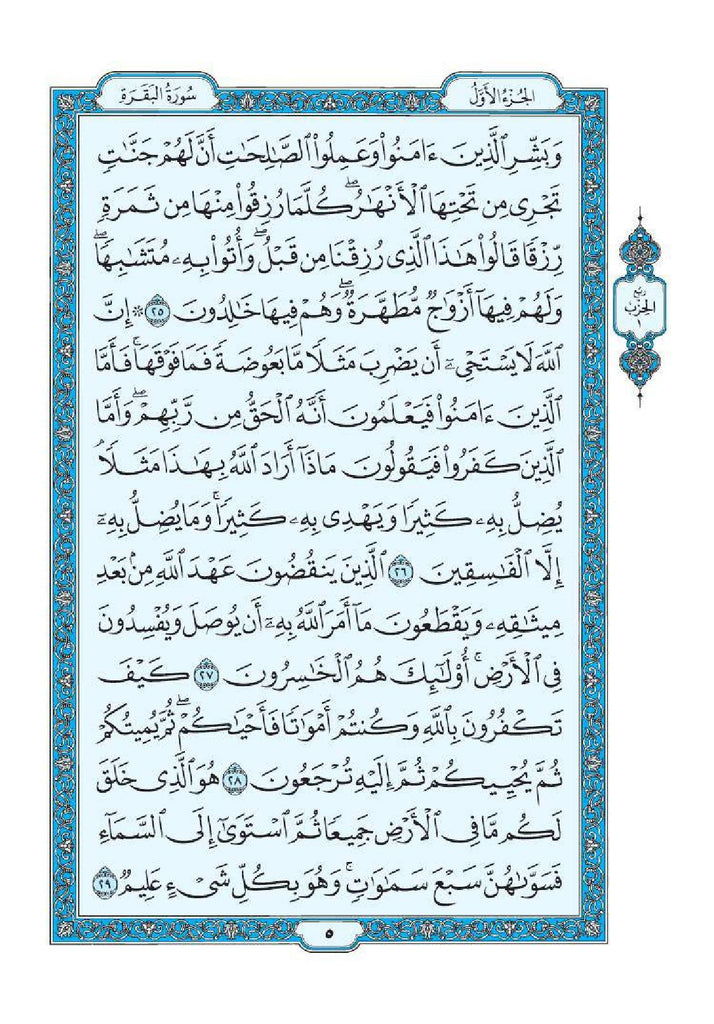 الجزء الأول
سورة البقرة
وَبَشِّرِ ٱلَّذِينَ ءَامَنُوا۟ وَعَمِلُوا۟ ٱلصَّـٰلِحَـٰتِ أَنَّ لَهُمْ جَنَّـٰتٍ
تَجْرِى مِن تَحْتِهَا ٱلْأَنْهَـٰرُ ۖ كُلَّمَا رُزِقُوا۟ مِنْهَا مِن ثَمَرَةٍ
رِّزْقًا قَالُوا۟ هَـٰذَا ٱلَّذِى رُزِقْنَا مِن قَبْلُ ۖ وَأُتُوا۟ بِهِۦ مُتَشَـٰبِهًا ۖ
وَلَهُمْ فِيهَآ أَزْوَٰجٌ مُّطَهَّرَةٌ ۖ وَهُمْ فِيهَا خَـٰلِدُونَ ٢٥ ۞ إِنَّ
ٱللَّهَ لَا يَسْتَحْىِۦٓ أَن يَضْرِبَ مَثَلًا مَّا بَعُوضَةً فَمَا فَوْقَهَا ۚ فَأَمَّا
ٱلَّذِينَ ءَامَنُوا۟ فَيَعْلَمُونَ أَنَّهُ ٱلْحَقُّ مِن رَّبِّهِمْ ۖ وَأَمَّا
ٱلَّذِينَ كَفَرُوا۟ فَيَقُولُونَ مَاذَآ أَرَادَ ٱللَّهُ بِهَـٰذَا مَثَلًا ۘ
يُضِلُّ بِهِۦ كَثِيرًا وَيَهْدِى بِهِۦ كَثِيرًا ۚ وَمَا يُضِلُّ بِهِۦٓ
إِلَّا ٱلْفَـٰسِقِينَ ٢٦ ٱلَّذِينَ يَنقُضُونَ عَهْدَ ٱللَّهِ مِنۢ بَعْدِ
مِيثَـٰقِهِۦ وَيَقْطَعُونَ مَآ أَمَرَ ٱللَّهُ بِهِۦٓ أَن يُوصَلَ وَيُفْسِدُونَ
فِى ٱلْأَرْضِ ۚ أُو۟لَـٰٓئِكَ هُمُ ٱلْخَـٰسِرُونَ ٢٧ كَيْفَ
تَكْفُرُونَ بِٱللَّهِ وَكُنتُمْ أَمْوَٰتًا فَأَحْيَـٰكُمْ ۖ ثُمَّ يُمِيتُكُمْ
ثُمَّ يُحْيِيكُمْ ثُمَّ إِلَيْهِ تُرْجَعُونَ ٢٨ هُوَ ٱلَّذِى خَلَقَ
لَكُم مَّا فِى ٱلْأَرْضِ جَمِيعًا ثُمَّ ٱسْتَوَىٰٓ إِلَى ٱلسَّمَآءِ
فَسَوَّىٰهُنَّ سَبْعَ سَمَـٰوَٰتٍ ۚ وَهُوَ بِكُلِّ شَىْءٍ عَلِيمٌ ٢٩
ربع
الحزب
١
٥